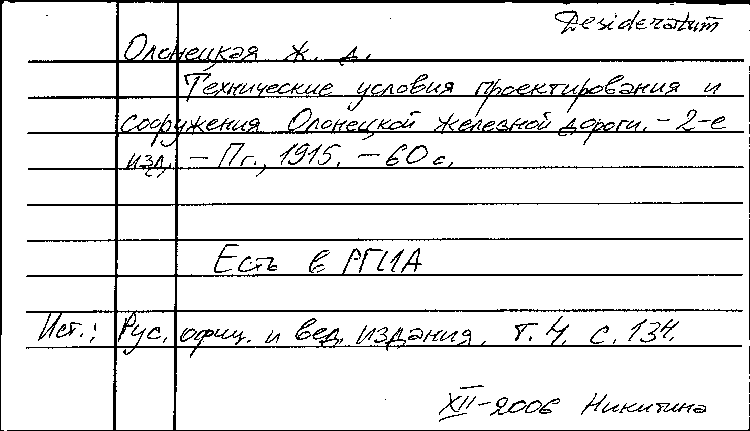 Desideratum
Олонецкая ж. д.
Технические условия проектирования и
сооружения Олонецкой железной дороги. – 2-е
изд. – Пг., 1915. – 60 с.
Есть в РГИА
Ист.: Рус. офиц. и вед. издания. Т. 4. С. 134.
XII-2006 Никитина